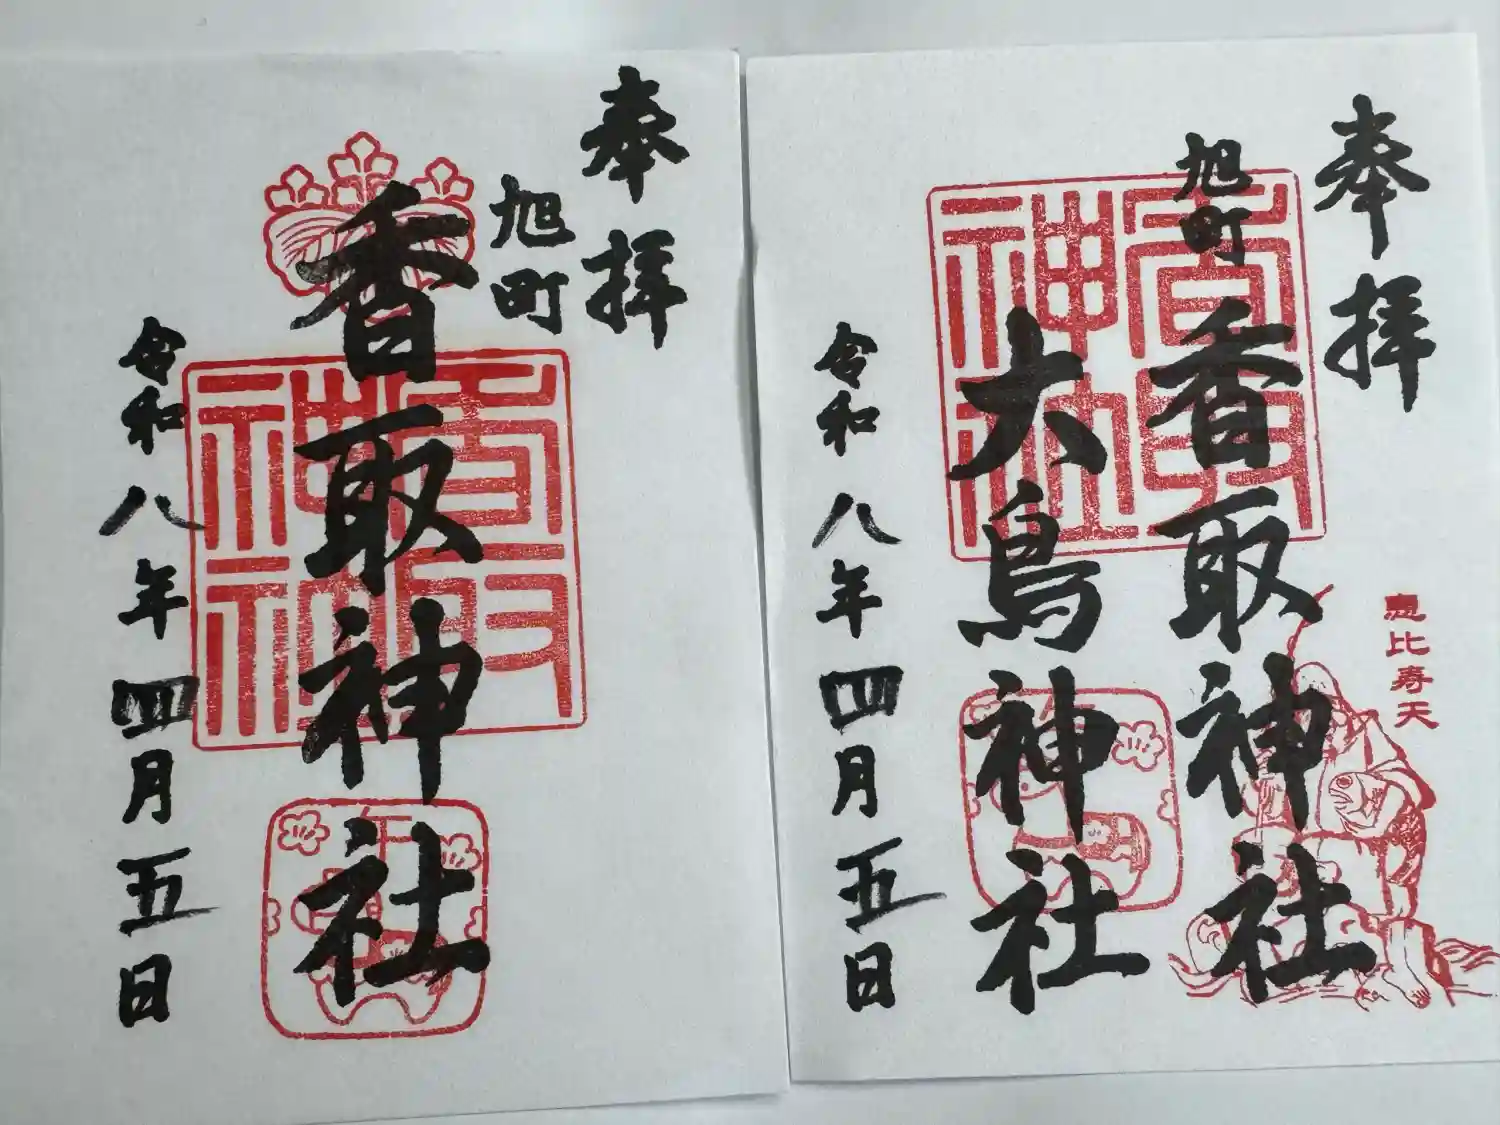 奉拝
旭町
香取神社
令和八年四月五日
香取神社
午
奉拝
旭町
香取神社
大鳥神社
令和八年四月五日
香取神社
恵比寿天